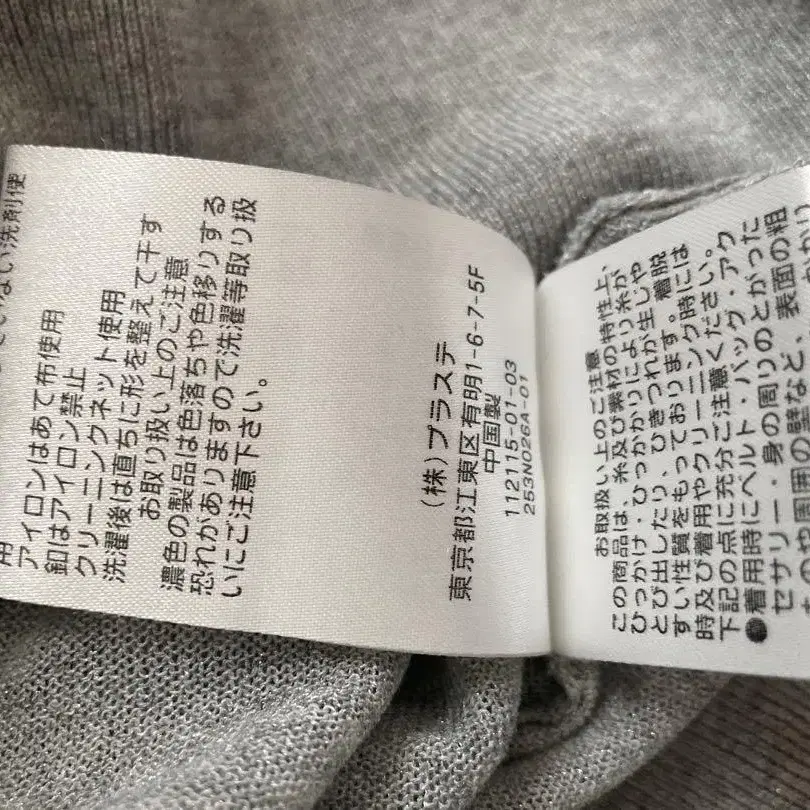 いない洗剤使
用
アイロンはあて布使用
釦はアイロン禁止
クリーニングネット使用
洗濯後は直ちに形を整えて干す
お取り扱い上のご注意
濃色の製品は色落ちや色移りする
恐れがありますので洗濯等取り扱
いにご注意下さい。
(株)プラステ
東京都江東区有明1-6-7-5F
中国製
112115-01-03
253N026A-01
お取扱い上のご注意
この商品は、糸及び素材の特性上、
ひっかけ・ひっかかりにより糸が
とび出したり、ひきつれが生じや
すい性質をもっております。着脱
時及び着用やクリーニング時には
下記の点に充分ご注意ください。
●着用時にベルト・バッグ・アク
セサリー・身の周りのとがった
や周囲の壁など、表面の粗